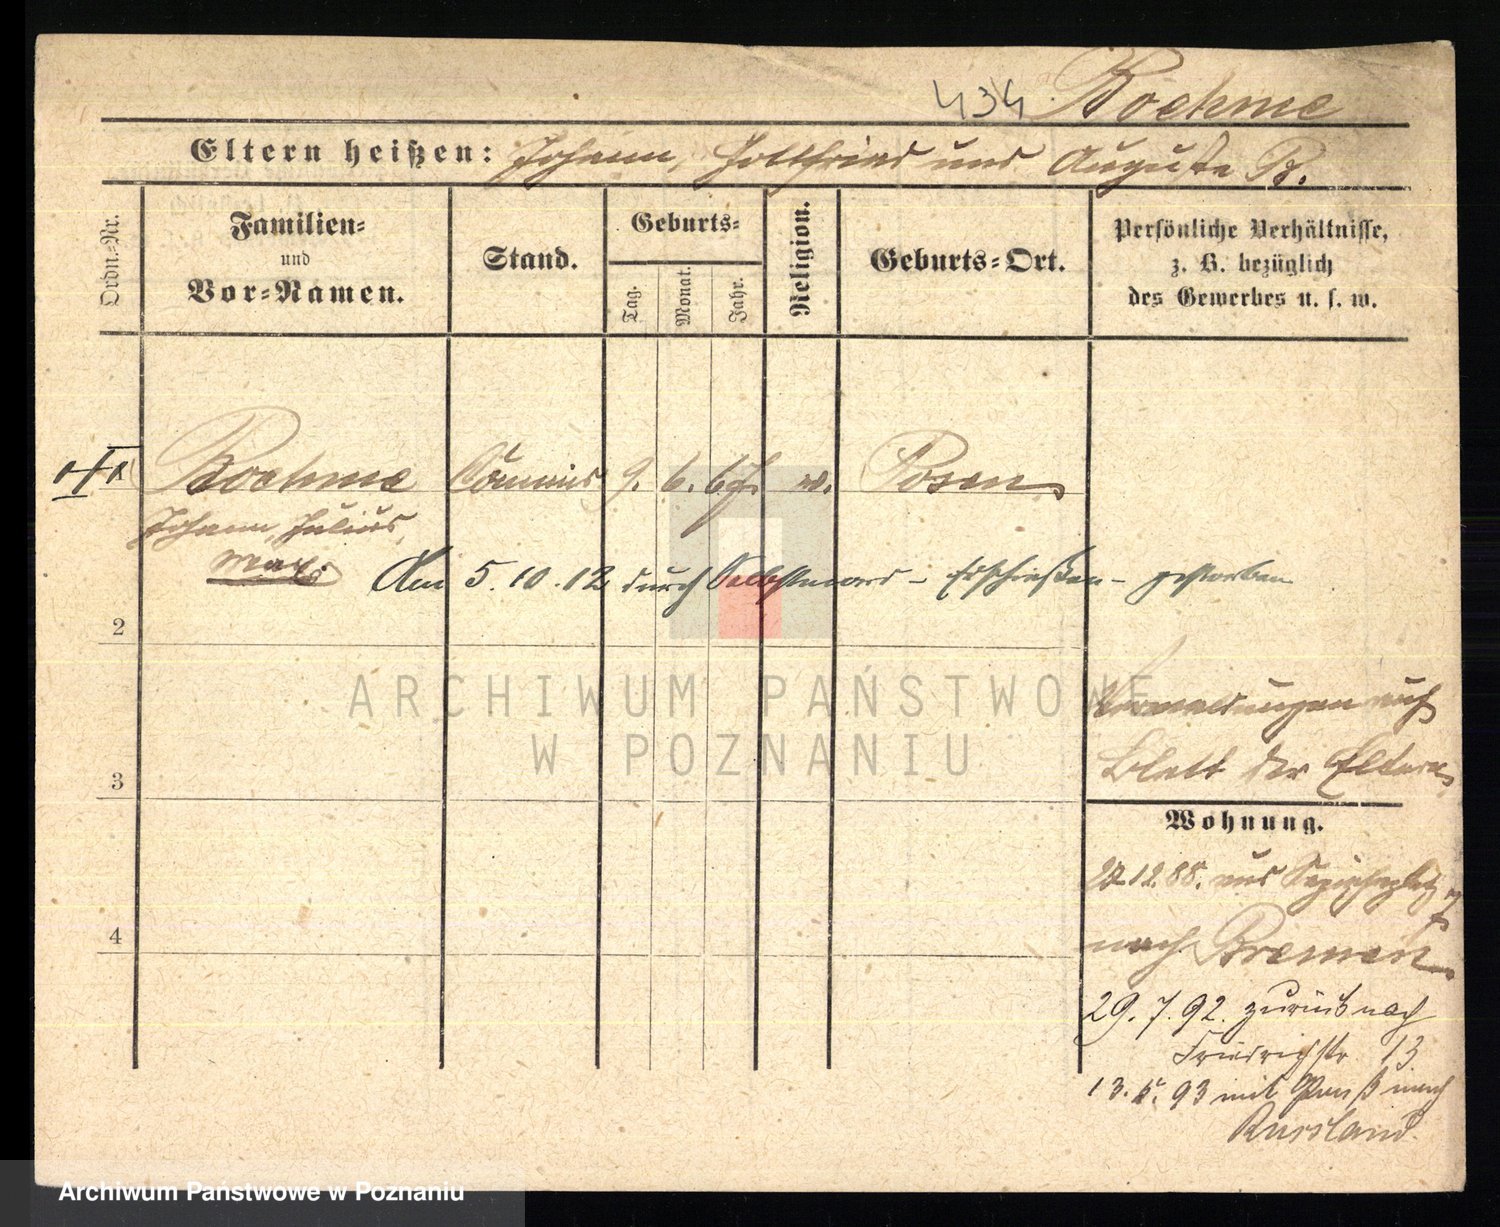 434 Boehme
Eltern heißen: Johann, Gottfried und Auguste B.
Ordn.-Nr.
Familien-
und
Vor-Namen.
Stand.
Geburts-
Tag.
Monat.
Jahr.
Religion.
Geburts-Ort.
Persönliche Verhältnisse,
z. B. bezüglich
des Gewerbes u. s. w.
1 Boehme Commis 9. 6. 67. ev. Posen.
Johann, Julius,
Max.
Am 5.10.12 durch Selbstmord - Erschießen - gestorben
2
3
4
Vermeldungen auf
Blatt der Eltern.
Wohnung.
27.12.88. aus
nach Bremen.
29.7.92. zurück nach
Friedrichstr. 13
13.5.93 mit Paß nach
Russland.
ARCHIWUM PAŃSTWOWE
W POZNANIU
Archiwum Państwowe w Poznaniu